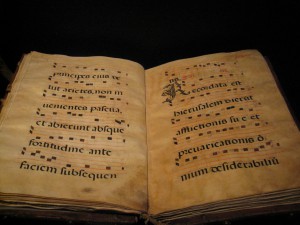 principes eius ve
lut arietes, non in
uenientes pascua,
et abierunt absque
fortitudine ante
faciem subsequen
Recordata est
Hierusalem dierū
afflictionis suę et
preuaricationis ō
nium desiderabiliū